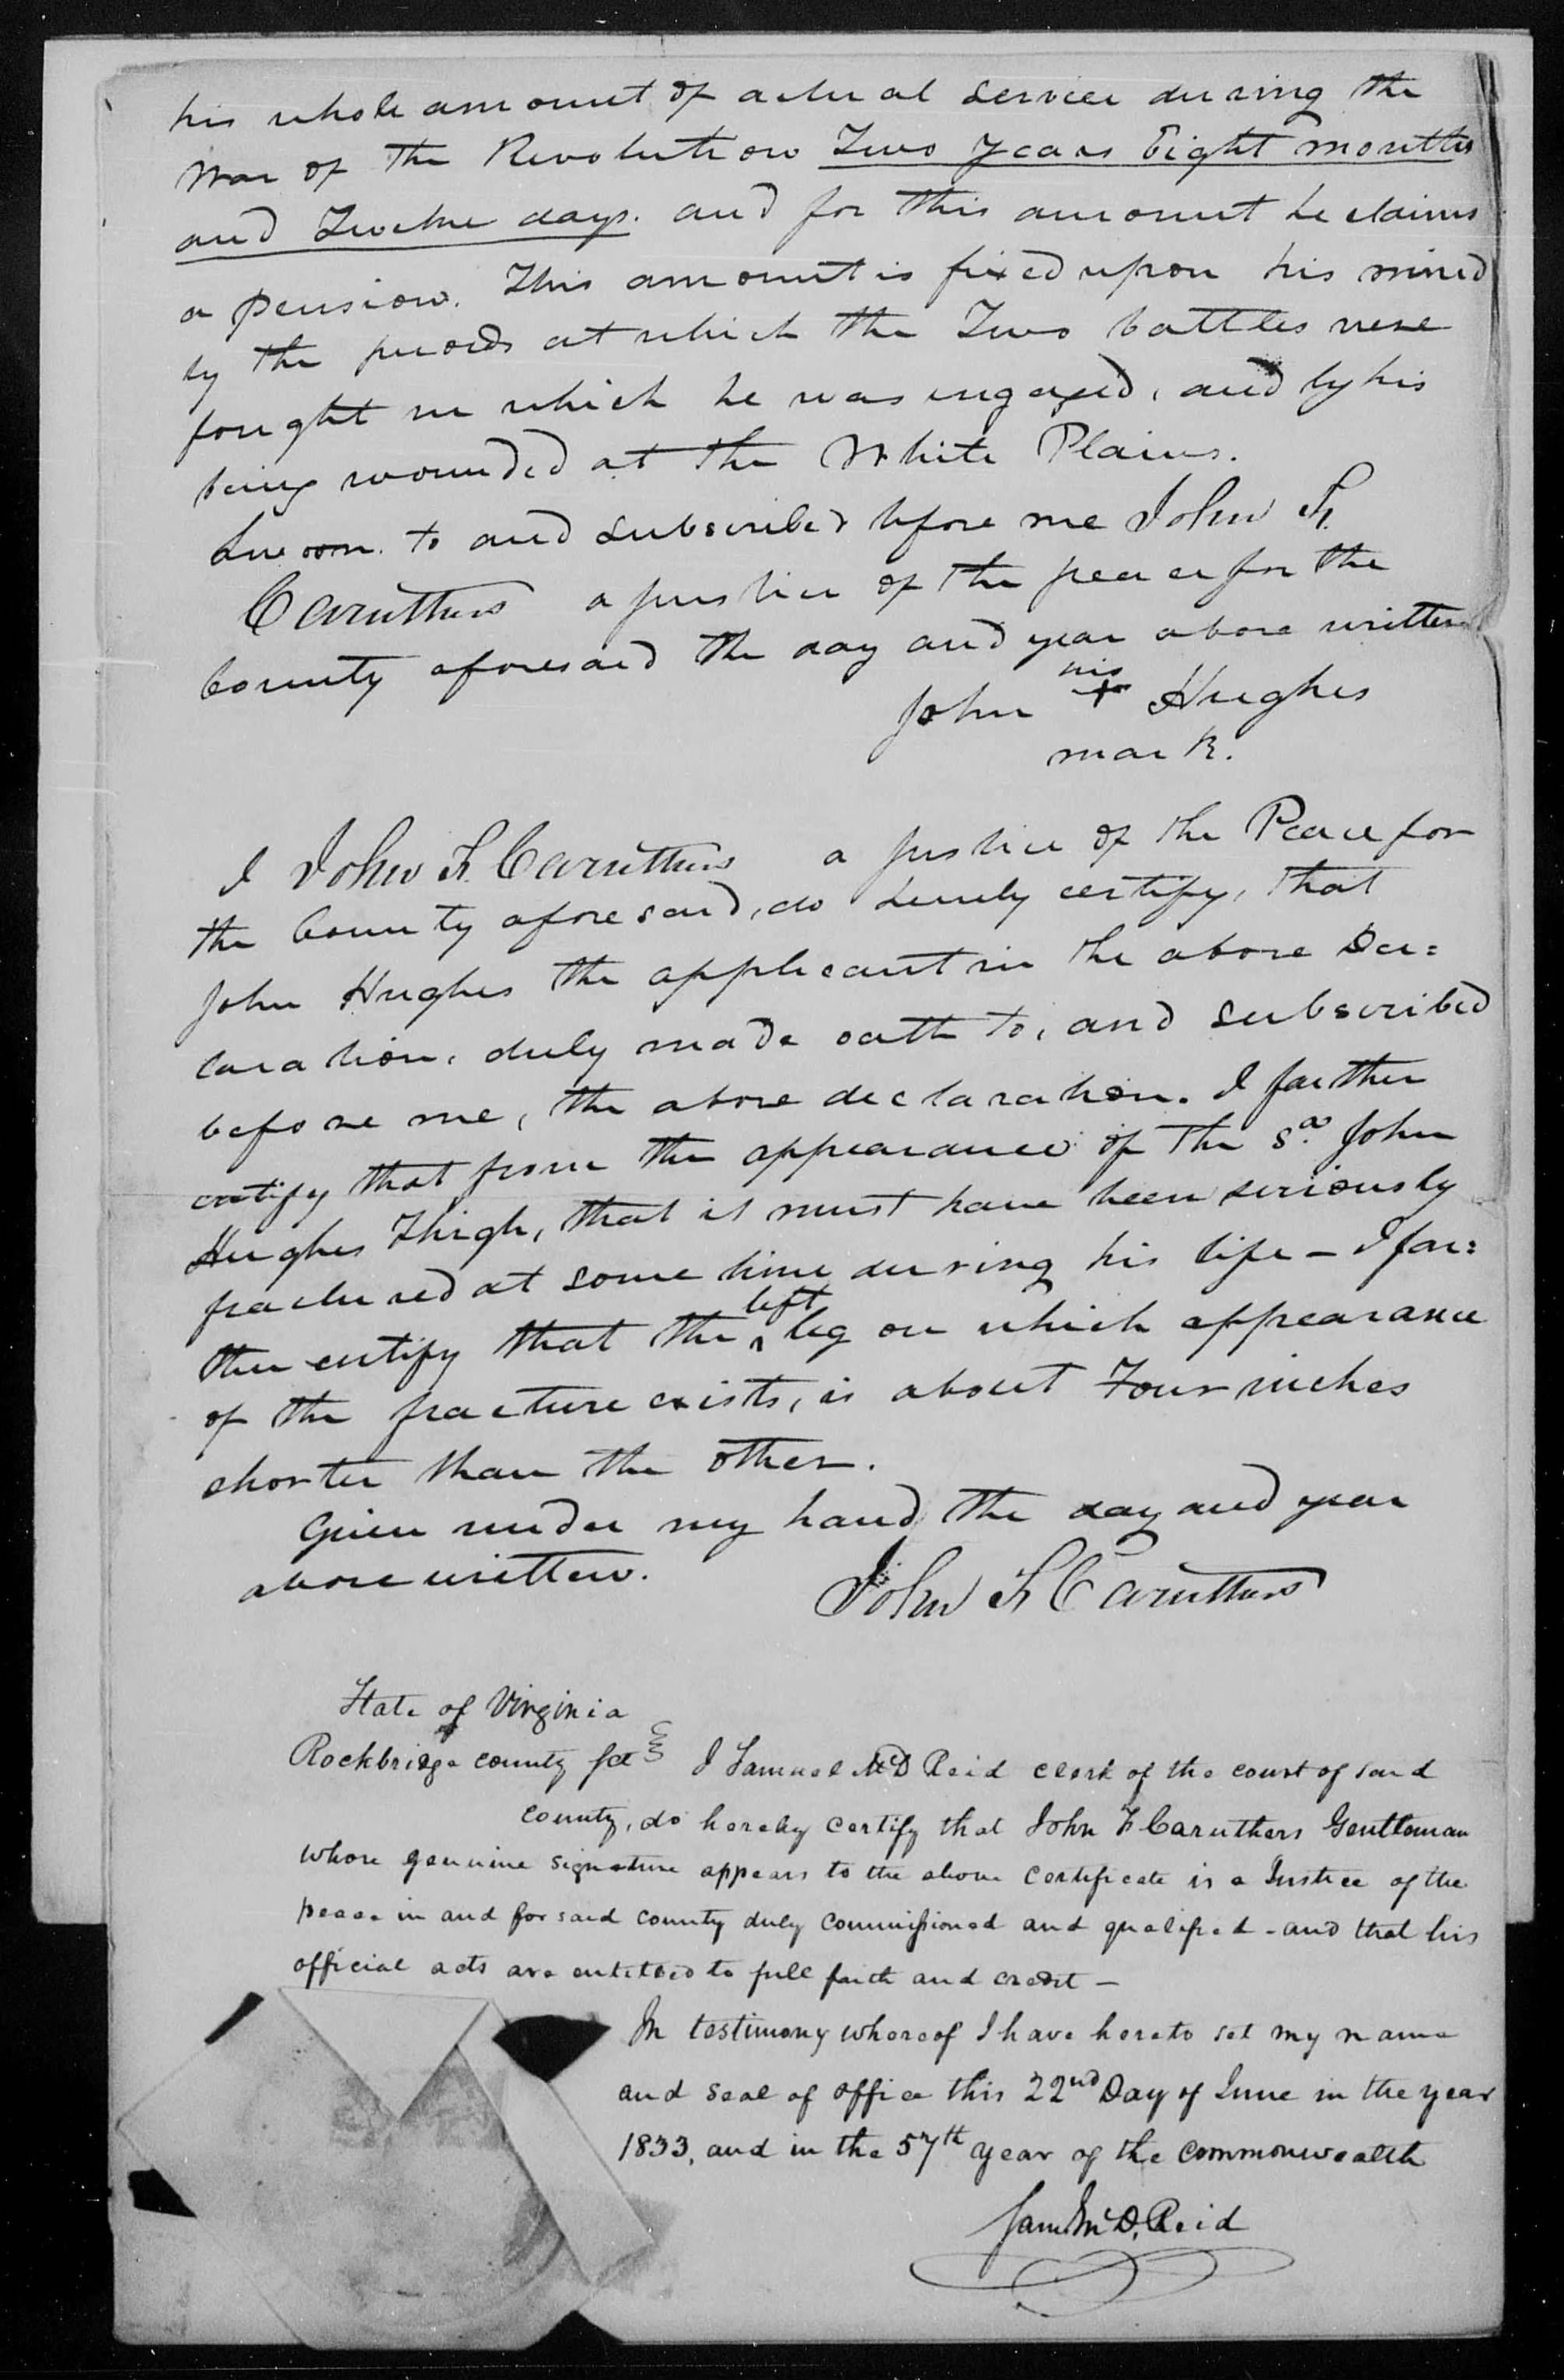 his whole amount of actual service during the
War of the Revolution Two years Eight months
and Twelve days. and for this amount he claims
a pension. This amount is fixed upon his mind
by the periods at which the Two battles were
fought in which he was engaged, and by his
being wounded at the White Plains.
Sworn to and subscribed before me John F.
Caruthers a justice of the peace for the
County aforesaid the day and year above written
his
John + Hughes
mark.
I John F. Caruthers a justice of the Peace for
the County aforesaid, do hereby certify, that
John Hughes the applicant in the above Dec=
laration, duly made oath to, and subscribed
before me, the above declaration. I farther
certify that from the appearance of the sd. John
Hughes Thigh, that it must have been seriously
fractured at some time during his life - I far=
ther certify that the left leg on which appearance
of the fracture exists, is about Four inches
shorter than the other.
Given under my hand the day and year
above written.
John F Caruthers
State of Virginia
Rockbridge county sct I Samuel McD Reid clerk of the court of said
county, do hereby certify that John F Caruthers Gentleman
whose genuine signature appears to the above certificate is a Justice of the
peace in and for said county duly commissioned and qualified - and that his
official acts are entitled to full faith and credit -
In testimony whereof I have hereto set my name
and seal of office this 22nd Day of June in the year
1833, and in the 57th year of the commonwealth
Sam McD. Reid